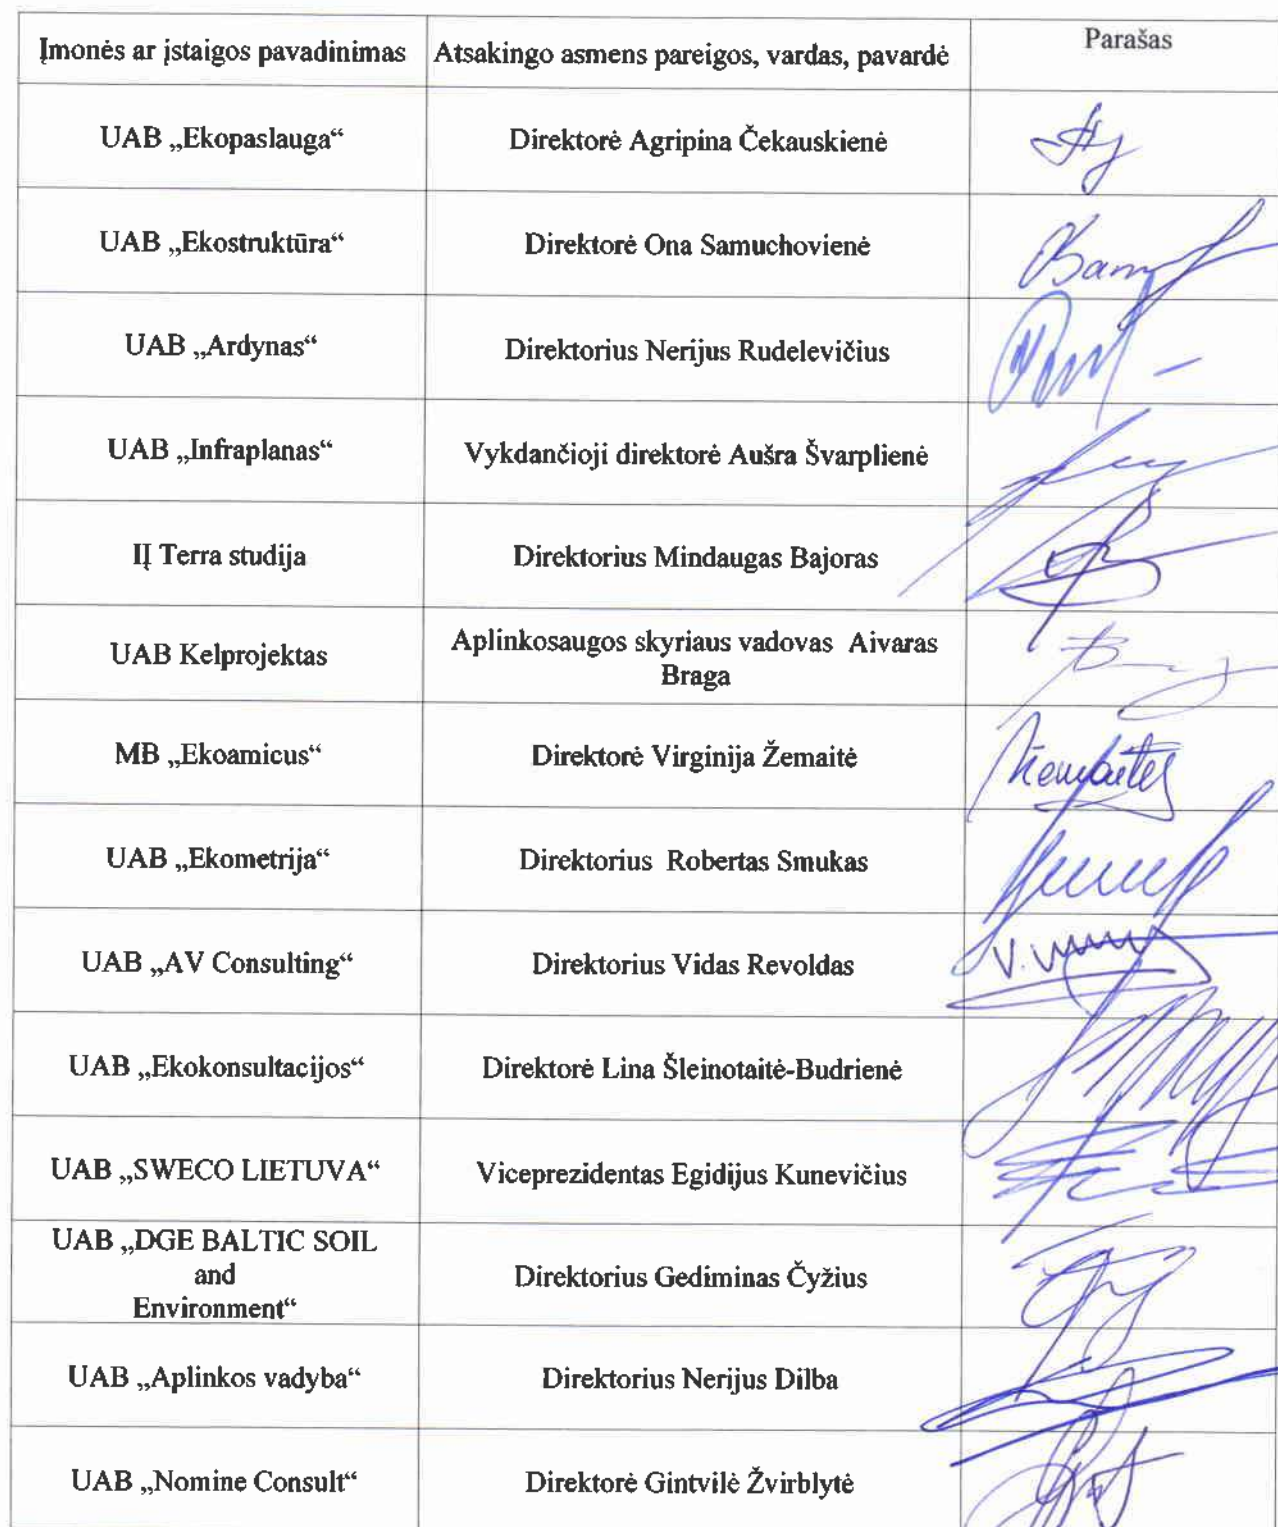 Įmonės ar įstaigos pavadinimas Atsakingo asmens pareigos, vardas, pavardė Parašas
UAB „Ekopaslauga“ Direktorė Agripina Čekauskienė
UAB „Ekostruktūra“ Direktorė Ona Samuchovienė
UAB „Ardynas“ Direktorius Nerijus Rudelevičius
UAB „Infraplanas“ Vykdančioji direktorė Aušra Švarplienė
IĮ Terra studija Direktorius Mindaugas Bajoras
UAB Kelprojektas Aplinkosaugos skyriaus vadovas Aivaras
Braga
MB „Ekoamicus“ Direktorė Virginija Žemaitė
UAB „Ekometrija“ Direktorius Robertas Smukas
UAB „AV Consulting“ Direktorius Vidas Revoldas
UAB „Ekokonsultacijos“ Direktorė Lina Šleinotaitė-Budrienė
UAB „SWECO LIETUVA“ Viceprezidentas Egidijus Kunevičius
UAB „DGE BALTIC SOIL
and
Environment“
Direktorius Gediminas Čyžius
UAB „Aplinkos vadyba“ Direktorius Nerijus Dilba
UAB „Nomine Consult“ Direktorė Gintvilė Žvirblytė